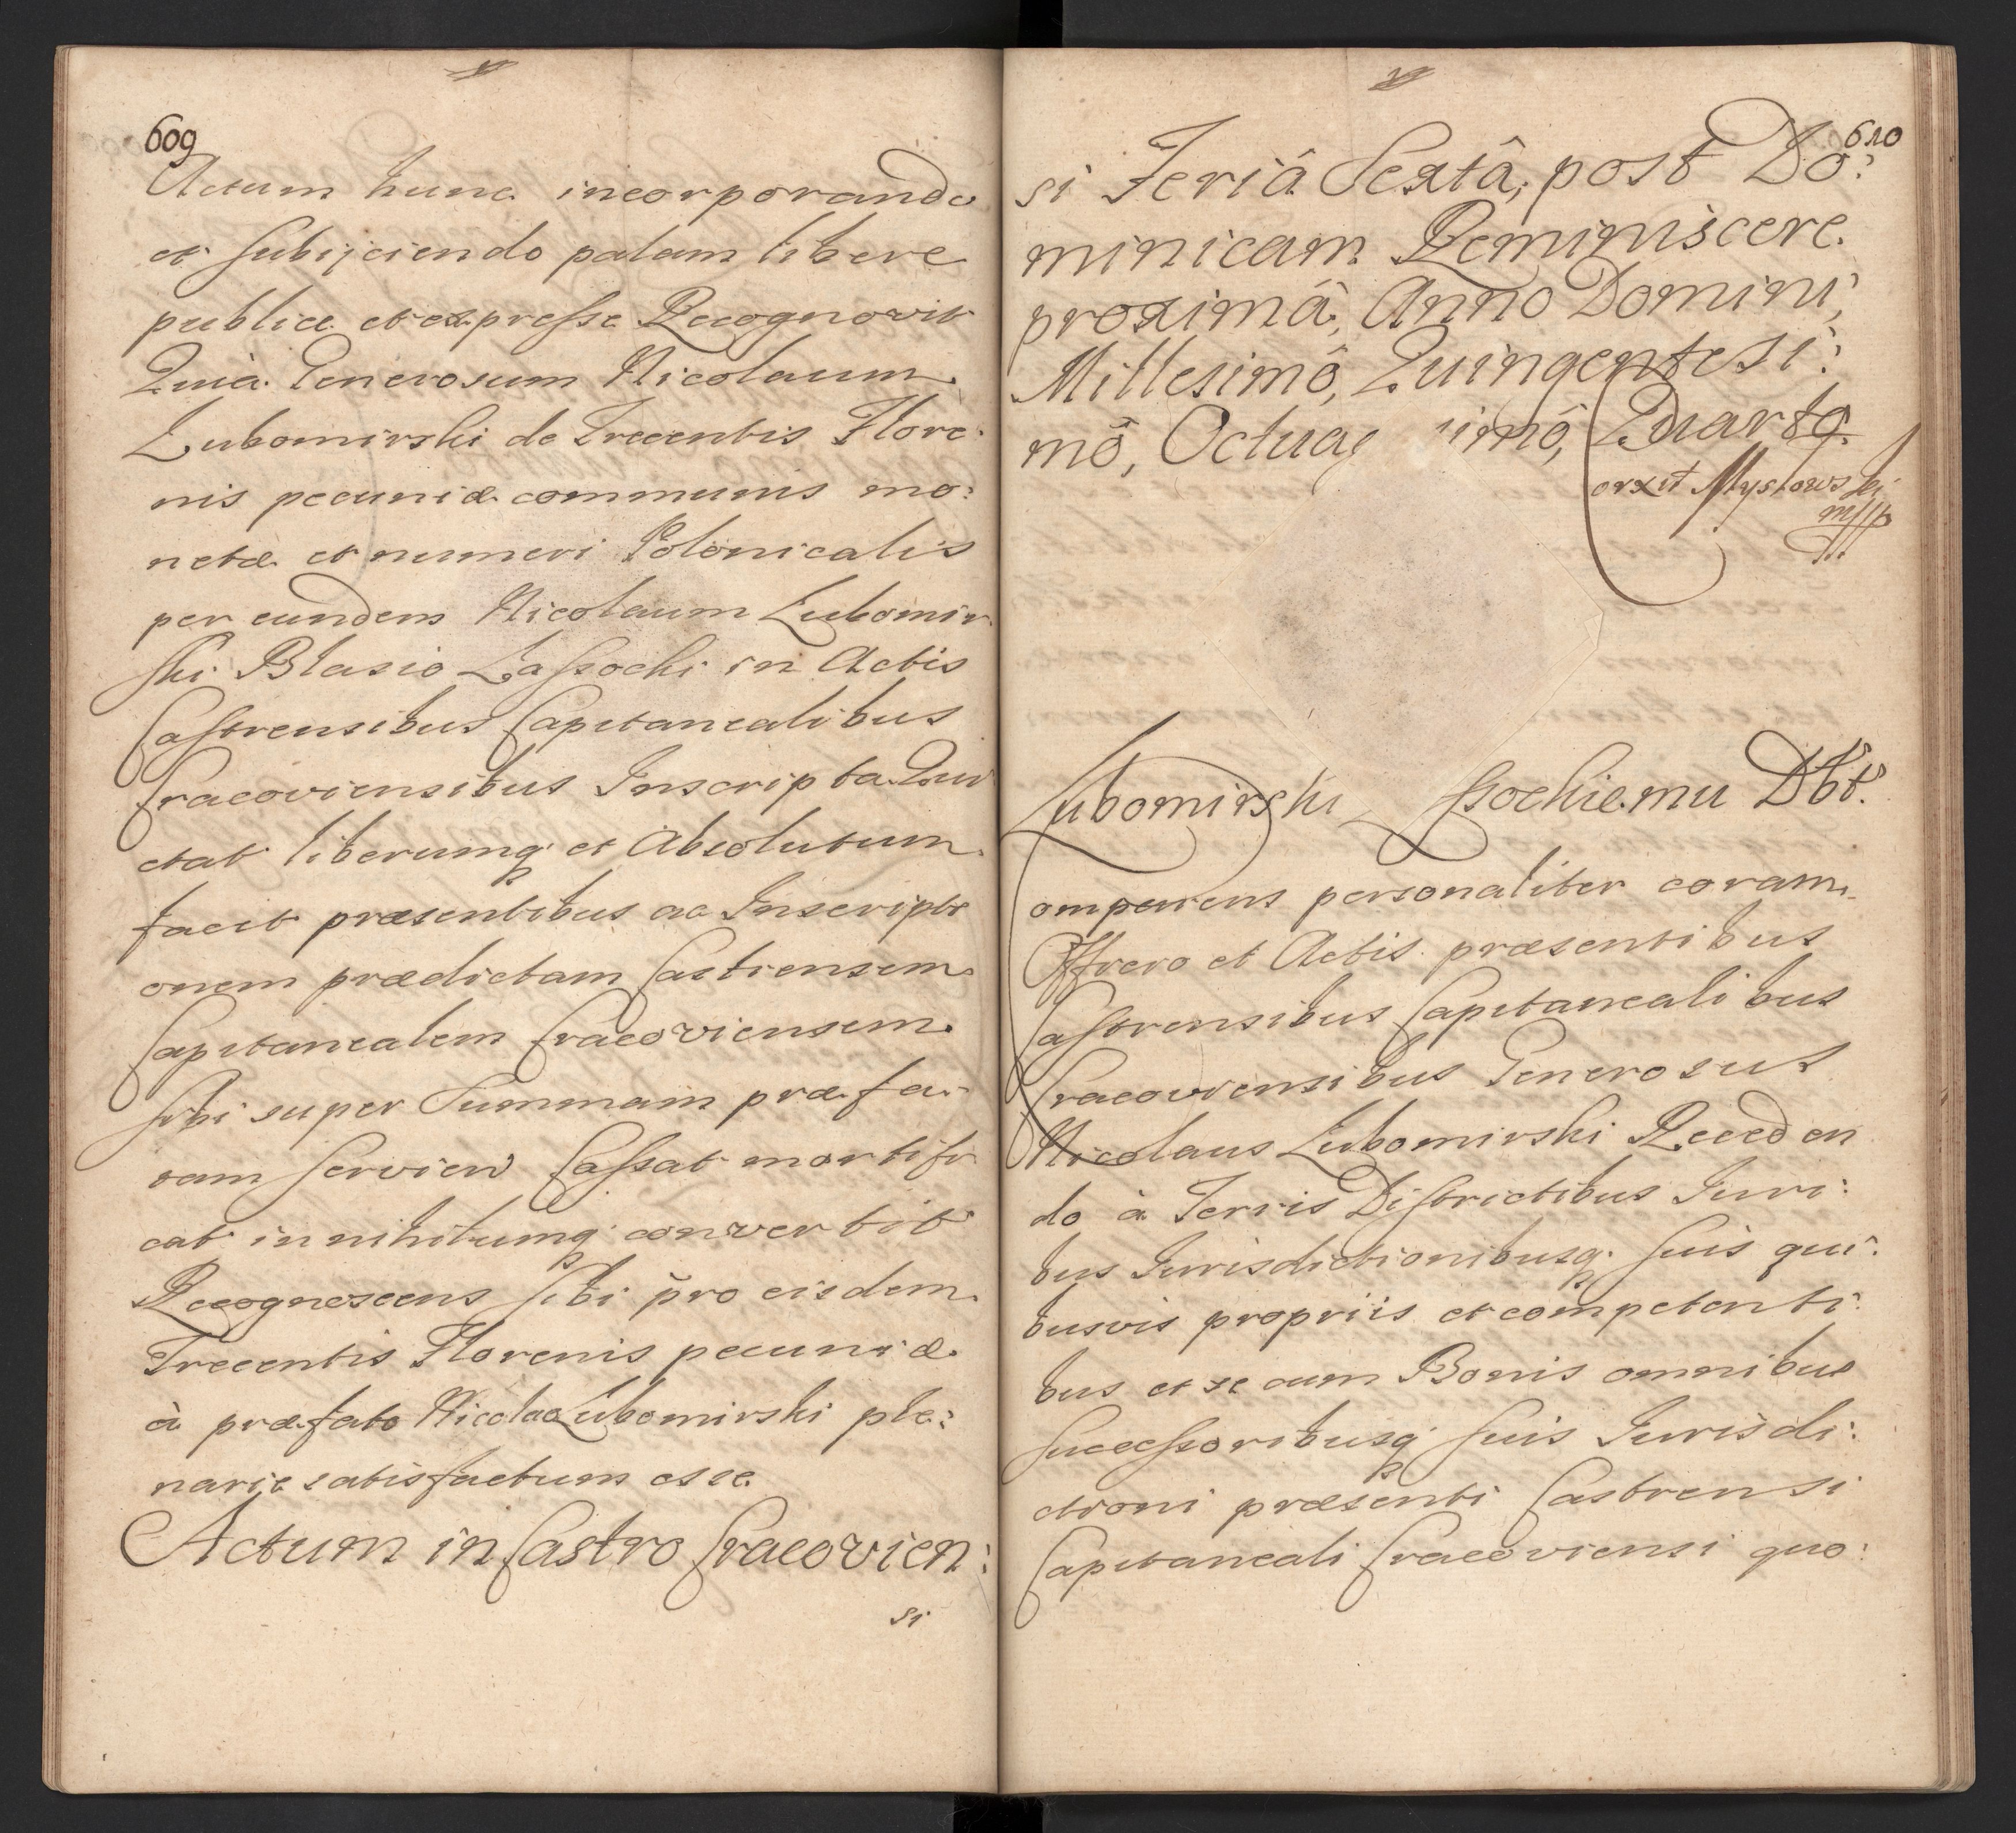 609
Actum hunc incorporando
et subijciendo palam libere
publice et expresse Recognovit
Quia Generosum Nicolaum
Lubomirski de Trecentis Flore:
nis pecuniæ communis mo:
netæ et numeri Polonicalis
per eundem Nicolaum Lubomir
ski Blasio Lassocki in Actis
Castrensibus Capitanealibus
Cracoviensibus Inscripta Qui
etat liberumq et Absolutum
facit præsentibus ac Inscripti
onem prædictam Castrensem
Capitanealem Cracoviensem
sibi super Summam præfa
tam servien Cassat mortifi
cat in nihilumq convertit
Recognoscens sibi pro eisdem
Trecentis Florenis pecuniæ
à præfato Nicolao Lubomirski ple:
narie satisfactum esse
Actum in Castro Cracovien:
si
610
si Feriâ Sextâ, post Do:
minicam Reminiscere
proximâ, Anno Domini,
Millesimô, Quingentesi:
mô, Octuag imô, Quarto.
orxit Mysłowski
mpp
Lubomirski ssockiemu Dbt.
omparens personaliter coram
Offcio et Actis præsentibus
Castrensibus Capitanealibus
Cracoviensibus Generosus
Nicolaus Lubomirski Receden
do à Terris Districtibus Juri:
bus Jurisdictionibusq suis qui:
busvis propriis et competenti:
bus et se cum Bonis omnibus
Successoribusq suis Jurisdi:
ctioni præsenti Castrensi
Capitaneali Cracoviensi quo: